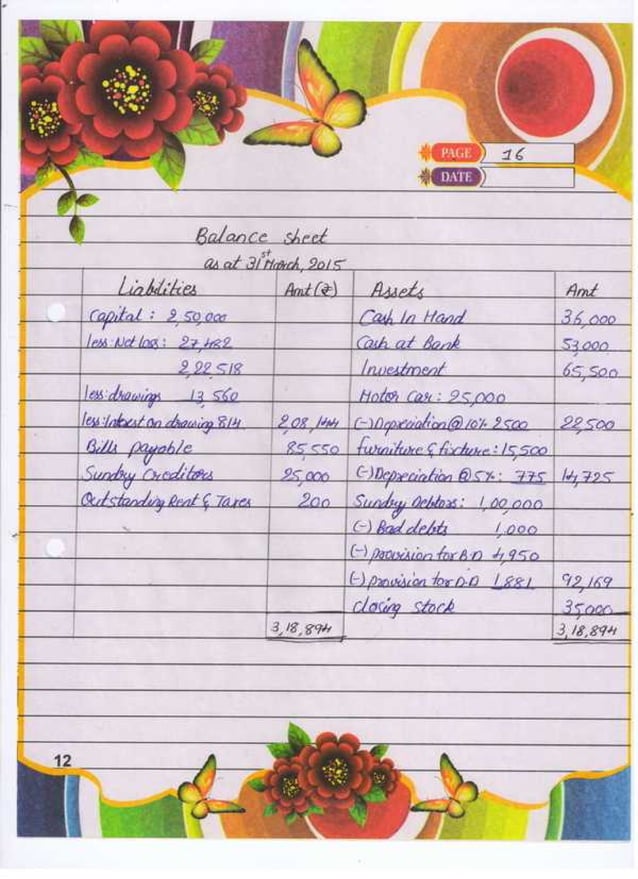 PAGE 16
DATE
Balance sheet
as at 31st March, 2015
Liabilities Amt (₹) Assets Amt
Capital : 2,50,000 Cash In Hand 36,000
less: Net loss : 27,482 Cash at Bank 53,000
2,22,518 Investment 65,500
less: drawings 13,560 Motor Car : 25,000
less: Interest on drawing 814 2,08,144 (-) Depreciation @ 10% 2500 22,500
Bills payable 85,550 furniture & fixture : 15,500
Sundry Creditors 25,000 (-) Depreciation @ 5% : 775 14,725
Outstanding Rent & Taxes 200 Sundry Debtors : 1,00,000
(-) Bad debts 1,000
(-) provision for B.D 4,950
(-) provision for D.D 1,881 92,169
closing stock 35,000
3,18,894 3,18,894
12